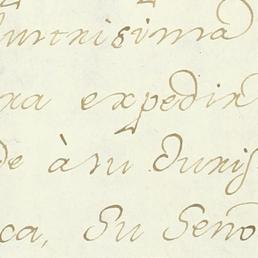 lustrisima
ra expedir
de à su Juris
ca, Su Seno